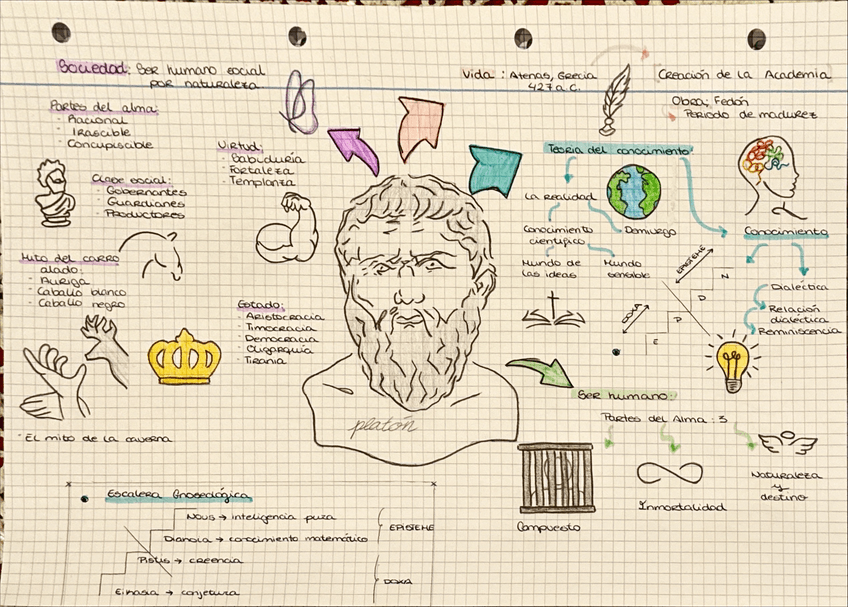 Sociedad: Ser humano social
por naturaleza.
Partes del alma:
· Racional
· Irascible
· Concupiscible
Clase social:
· Gobernantes
· Guardianes
· Productores
Mito del carro
alado:
· Auriga
· Caballo blanco
· Caballo negro
· El mito de la caverna
Virtud:
· Sabiduría
· Fortaleza
· Templanza
Estado:
· Aristocracia
· Timocracia
· Democracia
· Oligarquía
· Tirania
platón
Vida: Atenas, Grecia
427 a.C.
Creación de la Academia
Obra, Fedón
Periodo de madurez
Teoria del conocimiento:
La realidad
Conocimiento
científico
Demiurgo
Mundo de
las ideas
Mundo
sensible
Conocimiento
Dialéctica
Relación
dialéctica
Reminiscencia
EPISTEME
DOXA
N
D
P
E
Ser humano:
Partes del Alma: 3
Compuesto
Inmortalidad
Naturaleza
y
destino
Escalera Gnoseológica
Nous → inteligencia pura
Dianoia → conocimiento matemático
Pistis → creencia
Eikasia → conjetura
EPISTEME
DOXA